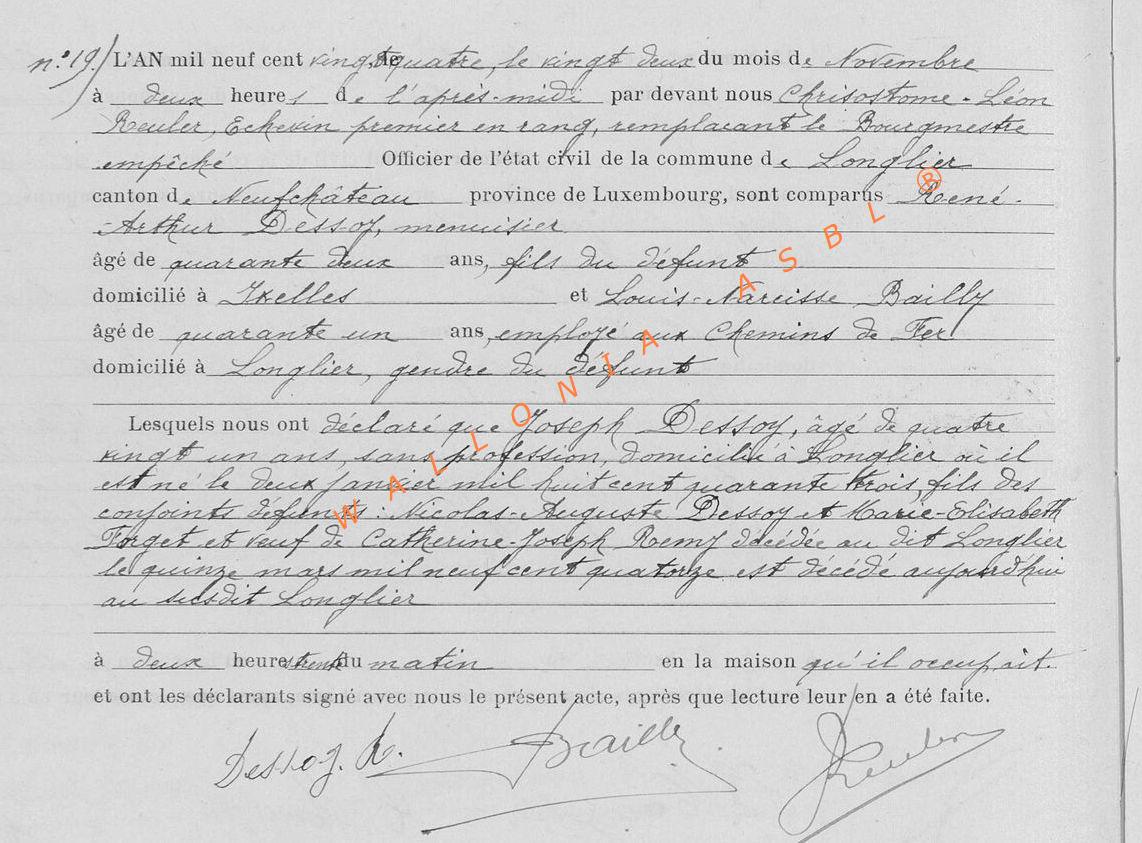 n.° 19. L'AN mil neuf cent vingt-quatre, le vingt deux du mois de Novembre
à deux heures de l'après-midi par devant nous Chrisostome-Léon
Reuler, Echevin premier en rang, remplaçant le Bourgmestre
empêché Officier de l'état civil de la commune de Longlier
canton de Neufchâteau province de Luxembourg, sont comparus René-
Arthur Dessoy, menuisier
âgé de quarante deux ans, fils du défunt
domicilié à Ixelles et Louis-Narcisse Bailly
âgé de quarante un ans, employé aux Chemins de Fer
domicilié à Longlier, gendre du défunt
Lesquels nous ont déclaré que Joseph Dessoy, âgé de quatre
vingt un ans, sans profession, domicilié à Longlier où il
est né le deux janvier mil huit cent quarante trois, fils des
conjoints défunts : Nicolas-Auguste Dessoy et Marie-Elisabeth
Forget et veuf de Catherine-Joseph Remy décédée au dit Longlier
le quinze mars mil neuf cent quatorze est décédé aujourd'hui
au susdit Longlier
à deux heures trente du matin en la maison qu'il occupait.
et ont les déclarants signé avec nous le présent acte, après que lecture leur en a été faite.
Dessoy. R. Bailly Reuler
WALLONIA ASBL ®